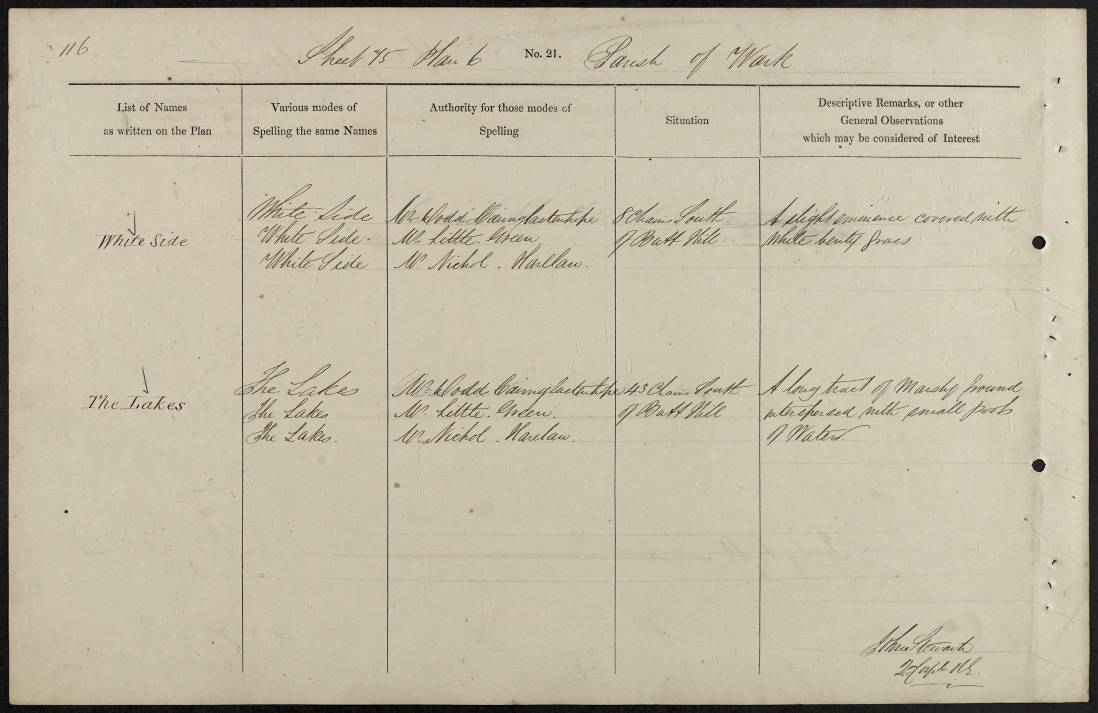 116
Sheet 75 Plan 6 No. 21. Parish of Wark
List of Names
as written on the Plan
Various modes of
Spelling the same Names
Authority for those modes of
Spelling
Situation
Descriptive Remarks, or other
General Observations
which may be considered of Interest
White Side
White Side
White Side.
White Side
Mr. Dodd Cairnglastenhope
Mr. Little. Green
Mr. Nichol. Harelaw.
8 Chains South
of Batt Hill
A slight eminence covered with
White benty grass
The Lakes
The Lakes
The Lakes
The Lakes.
Mr. Dodd Cairnglastenhope
Mr. Little. Green.
Mr. Nichol. Harelaw.
43 Chains South
of Batt Hill
A long tract of Marshy Ground
interspersed with small pools
of Water.
John Stewart
2d Corpl. R.E.